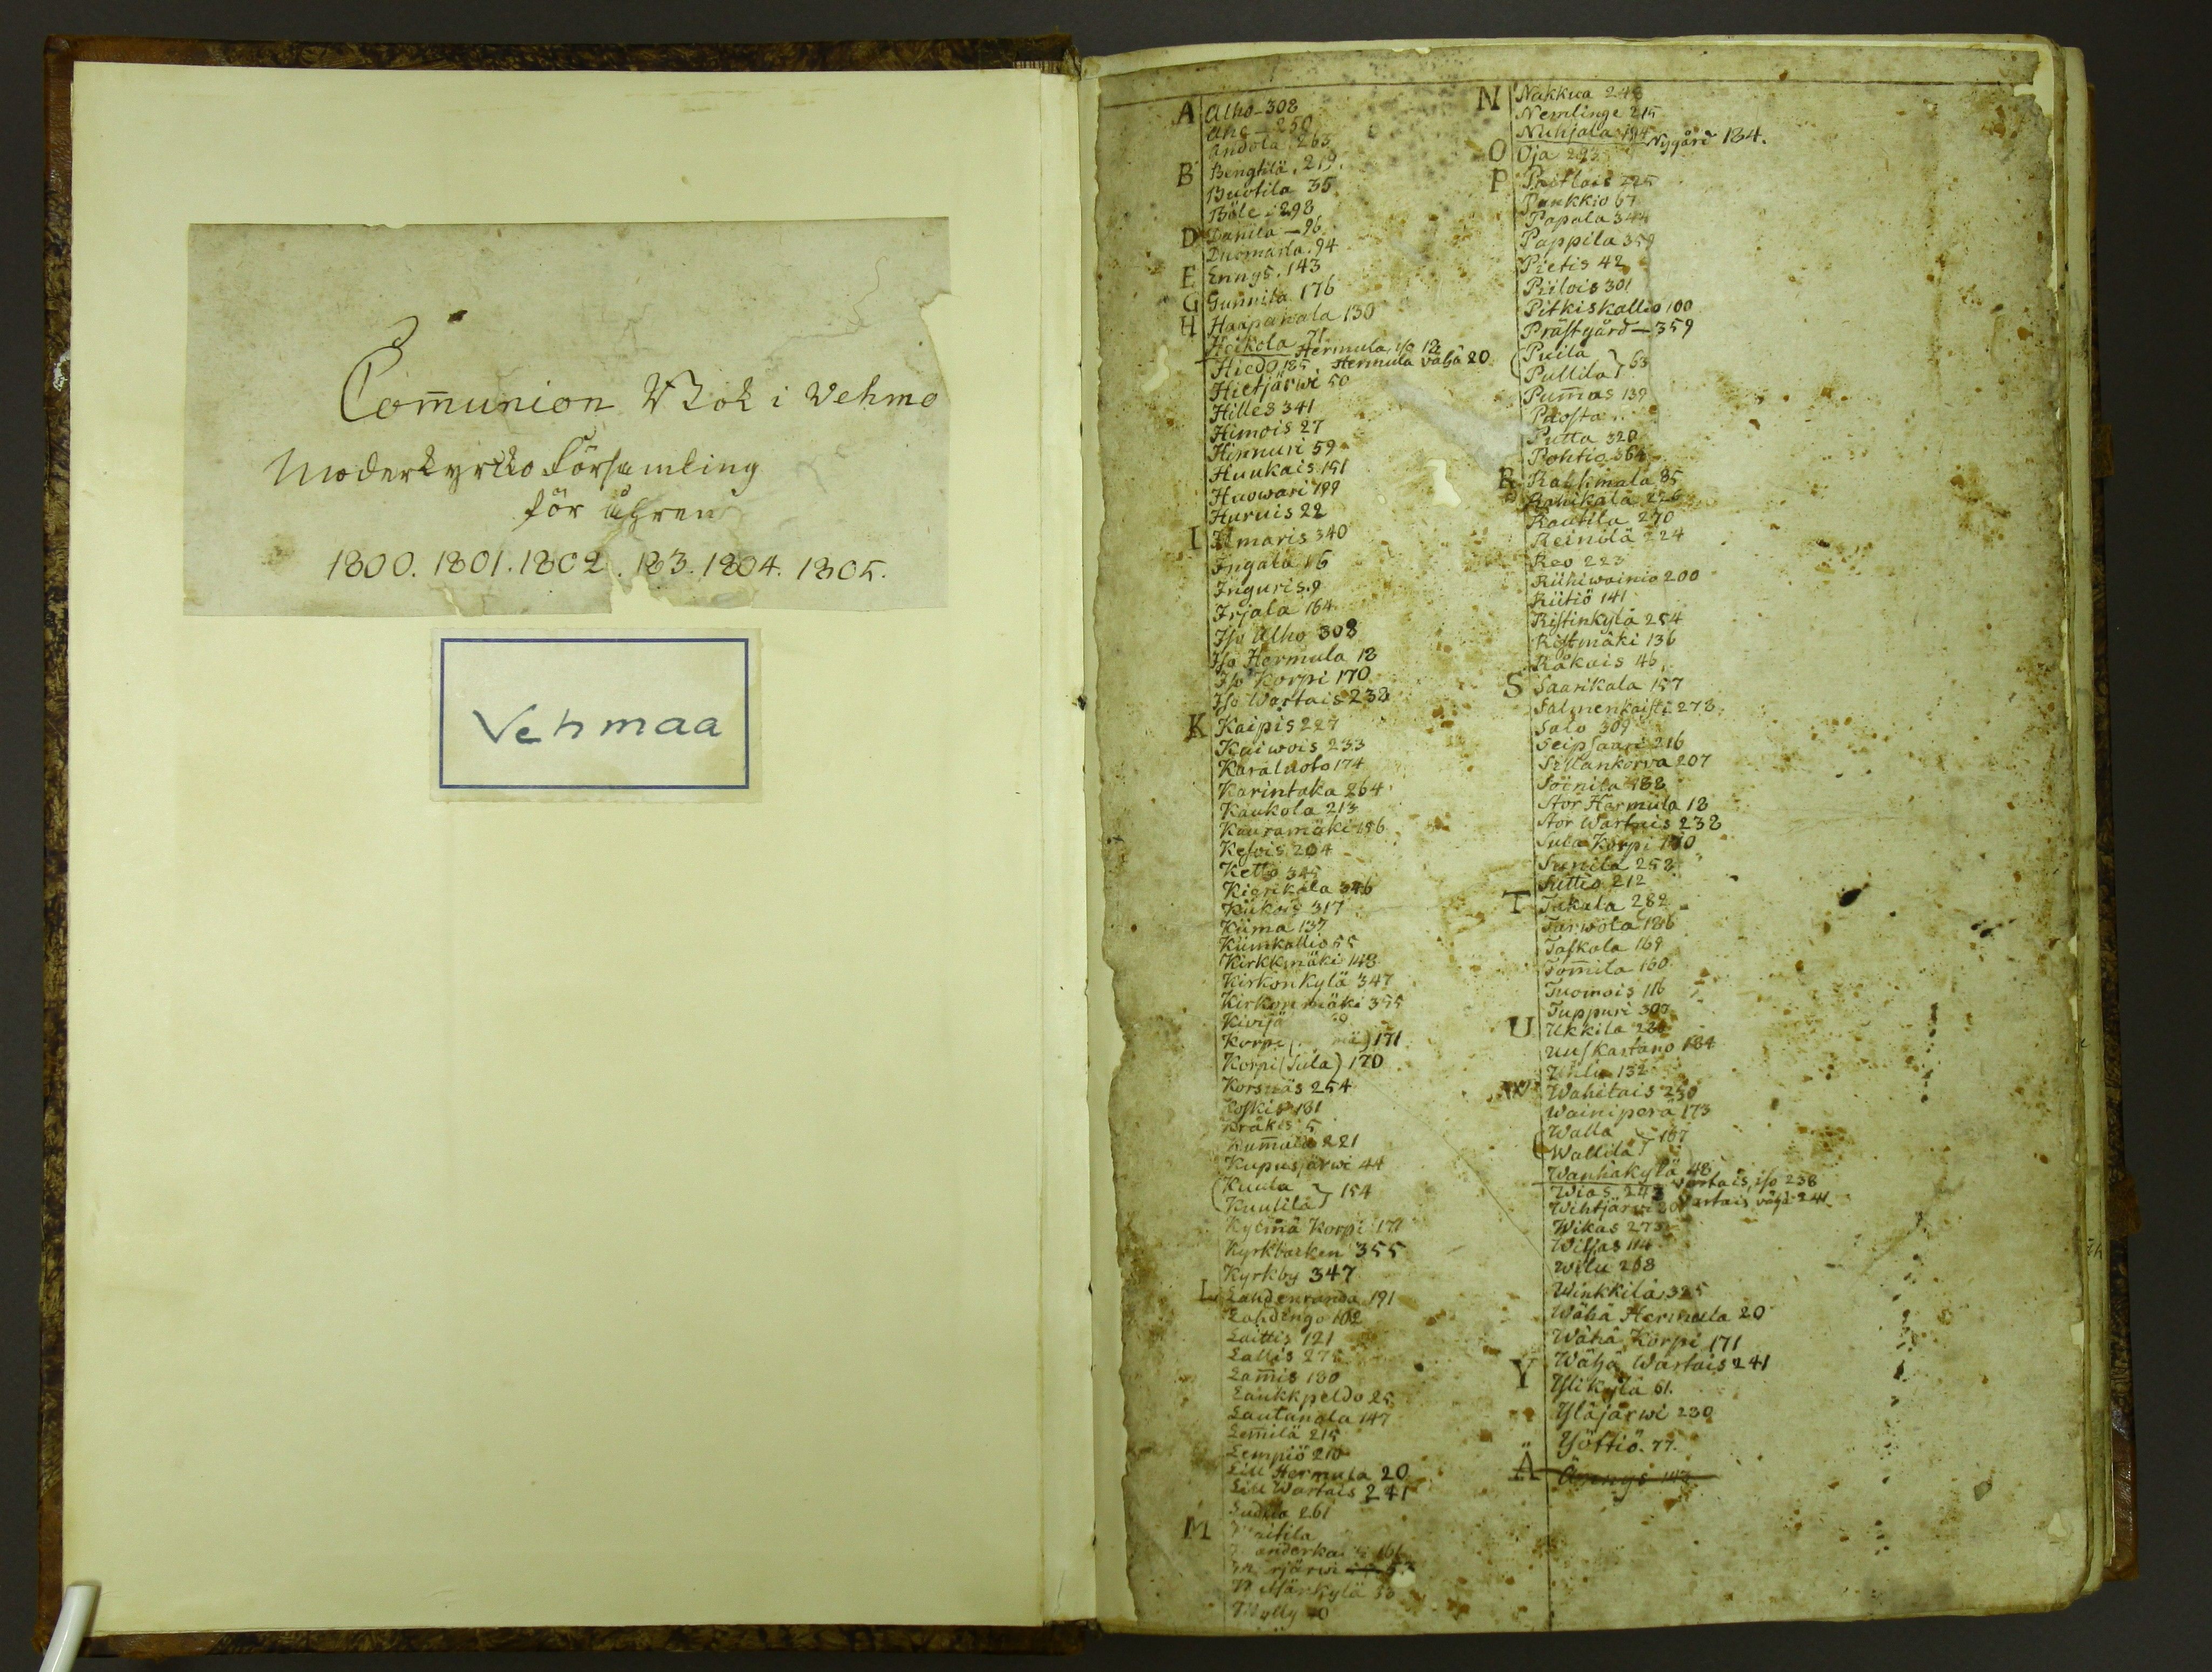 Com̄union Bok i Vehmo
Moderkyrko Församling
för åhren
1800. 1801. 1802. 183. 1804. 1805.
Vehmaa
A Alho - 308
Ahe - 250
Andola 263
B Bengtilä. 219.
Buotila 35
Böle - 298
D Danila - 96
Duomarla. 94
E Ennys. 143
G Gunnila 176
H Haapanala 130
Heikola 71
Hermula, iso 18
Hiedo 185. Hermula vähä 20
Hietjärwi 50
Hilles 341
Himois 27
Hinnuri 59
Huukais 151
Huowari 199
Huruis 22
I Ilmaris 340
Ingala 16
Inguris. 9
Irjala 164
Iso Alho 308
Iso Hermula 18
Iso Korpi 170
Iso Wartais 238
K Kaipis 227
Kaiwois 233
Karaluoto 174
Karintaka 264
Kaukola 213
Kauramäki 156
Kesois 204
Ketto 345
Kierikala 346
Kiikois 317
Kiima 137
Kiimkallio 55
Kirkkmäki 148
Kirkonkylä 347
Kirkonmäki 355
Kivijä
Korpi 171
Korpi (Sula) 170
Korsnäs 254
Koskis 181
Kräkis 5
Kum̄ais 221
Kupusjärwi 44
(Kuula
(Kuulila) 154
Kylmä Korpi 171
Kyrkbacken 355
Kyrkby 347
L Lahdenranda 191
Lahdingo 102
Laittis 121
Lallis 275
Lam̄is 180
Laukkpeldo 25
Lautanala 147
Lem̄ilä 215
Lempiö 210
Lill Hermula 20
Lill Wartais 241
Ludila 261
M aitila
anderka 161
rjärwi
Märkylä
Mylly
N Nakkua 248
Nemlinge 215
Nuhjala 194 Nygård 184.
O Oja 293
P Paitlais 225
Pankkio 67
Papala 344
Pappila 359
Pietis 42
Piilois 301
Pitkiskallio 100
Prästgård - 359
(Puila
(Pullila) 63
Pum̄as 139
Puosta
Putta 320
Pohtio 364
R Rahimala 85
Rahikala 226
Rautila 270
Reinilä 224
Reo 223
Riihiwainio 200
Riitiö 141
Ristinkylä 254
Ristmäki 136
Råkais 46
S Saarikala 157
Salmenkaisti 273
Salo 309
Seipsaari 216
Sillankorva 207
Soinila 188
Stor Hermula 18
Stor Wartais 238
Sula Korpi 170
Sunila 258
Suttio 212
T Takala 282
Tarwola 186
Taskola 169
Tom̄ila 160
Tuomois 116
Tuppuri 307
U Ukkila 284
Uusikartano 184
Uulu 132
W Wahitais 250
Wainiperä 173
(Walla
(Wallila) 107
Wanhakylä 48
Wias 243 Vartais, iso 238
Wihtjärwi 30 Vartais, vähä 241
Wikas 273
Wiljas 114
Wilu 208
Winkkilä 325
Wähä Hermula 20
Wähä Korpi 171
Wähä Wartais 241
Y Ylikylä 61.
Yläjärwi 230
Yöstiö. 77.
Ä Ännys 143